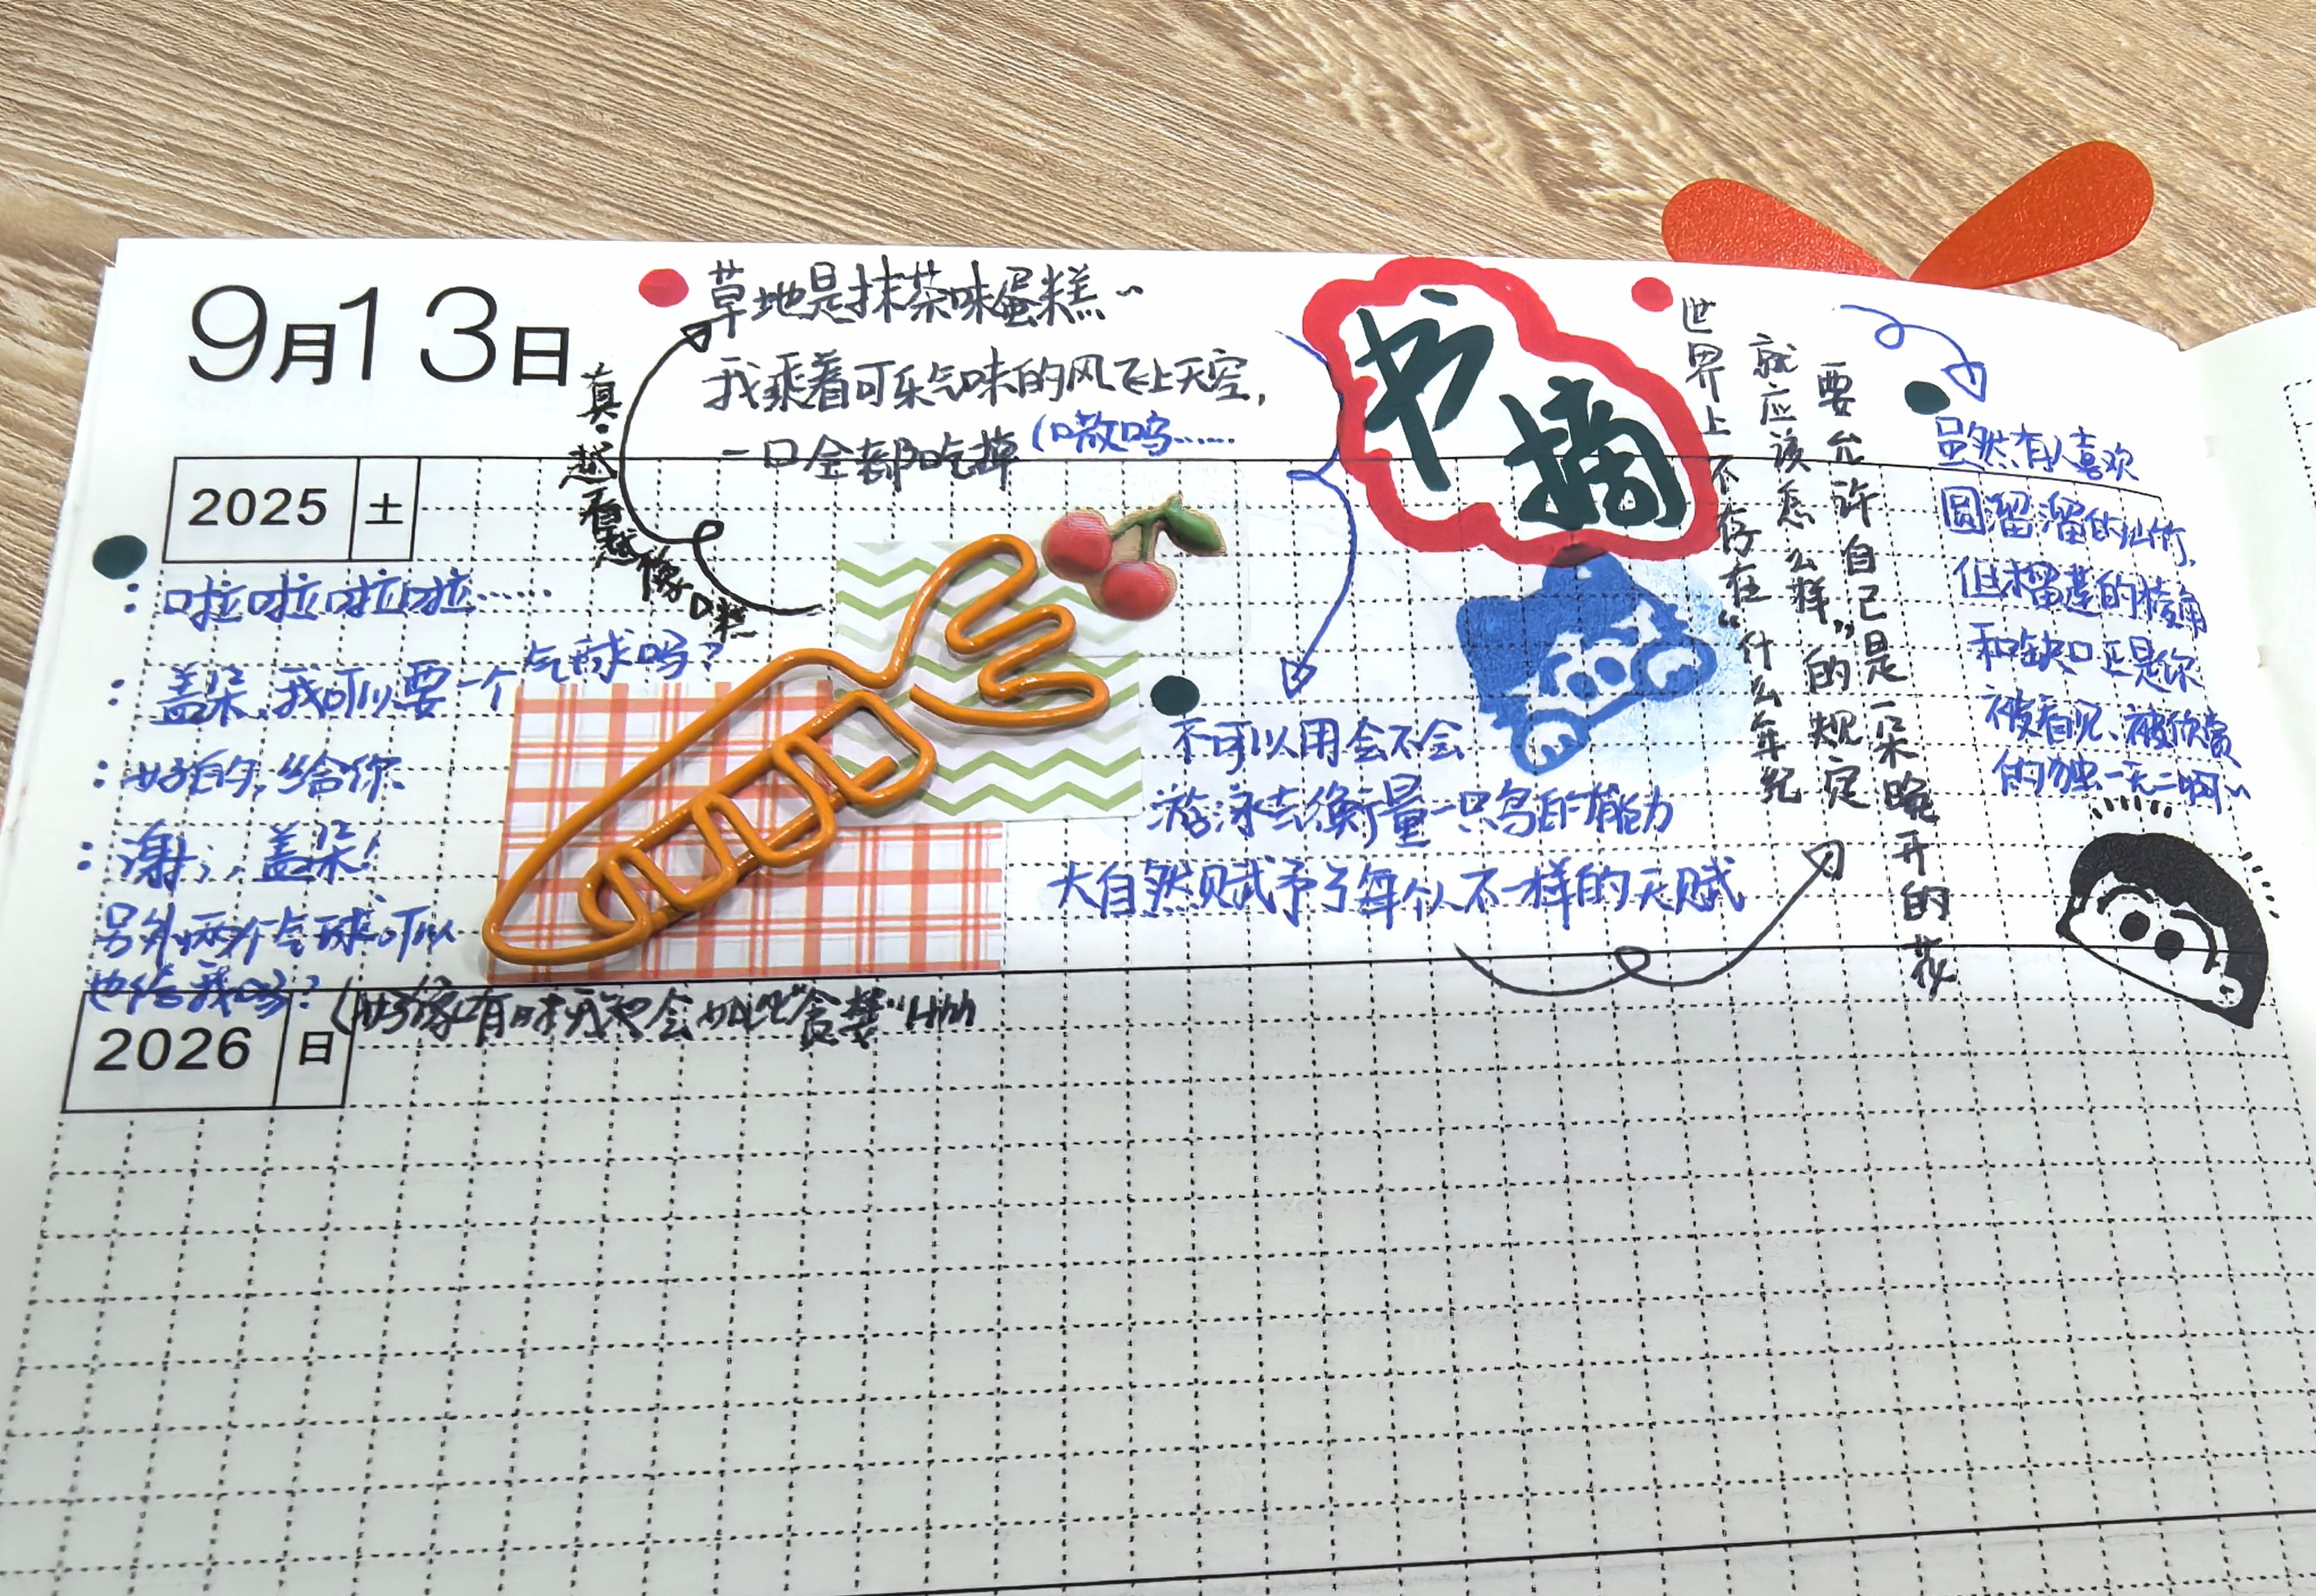 9月13日
2025 土
：啦啦啦啦……
：盖朵，我可以要一个气球吗？
：好的，给你
：谢谢，盖朵！
另外两个气球可以
也给我吗？
(好像有时我也会如此"贪婪"Hhh
真·越看越像
草地是抹茶味蛋糕~
我乘着可乐气味的风飞上天空，
一口全都吃掉（嗷呜……
书摘
不可以用会不会
游泳去衡量一只鸟的能力
大自然赋予了每个人不一样的天赋
世界上不存在“什么年纪
就应该怎么样”的规定
要允许自己是一朵晚开的花
虽然有人喜欢
圆溜溜的山竹，
但榴莲的棱角
和缺口正是你
被看见、被欣赏
的独一无二啊~
2026 日